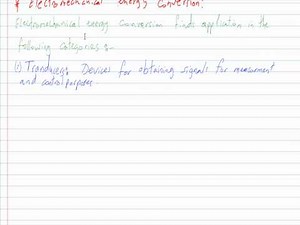 * Electromechanical Energy Conversion:
Electromechanical energy conversion finds application in the
following categories:-
(1) Tranducers: Devices for obtaining signals for measurement
and control purposes.